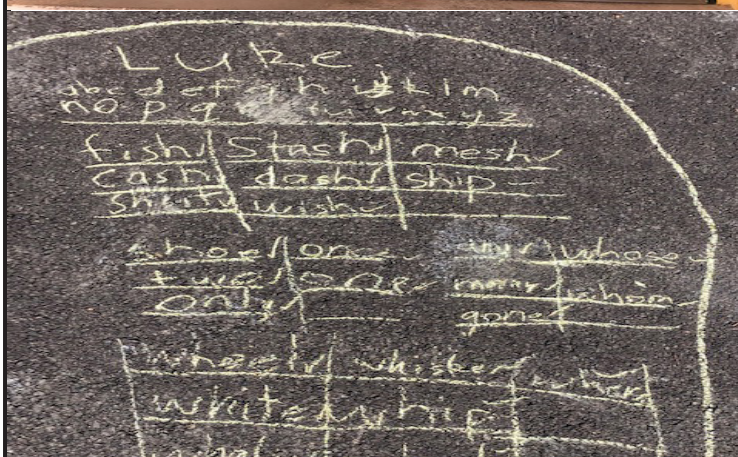 Luke
abcdefghijklm
nopq uvwxyz
fish stash mesh
cash dash ship
wish
shoe one whose
one many whom
only gone
whisker where
write whip